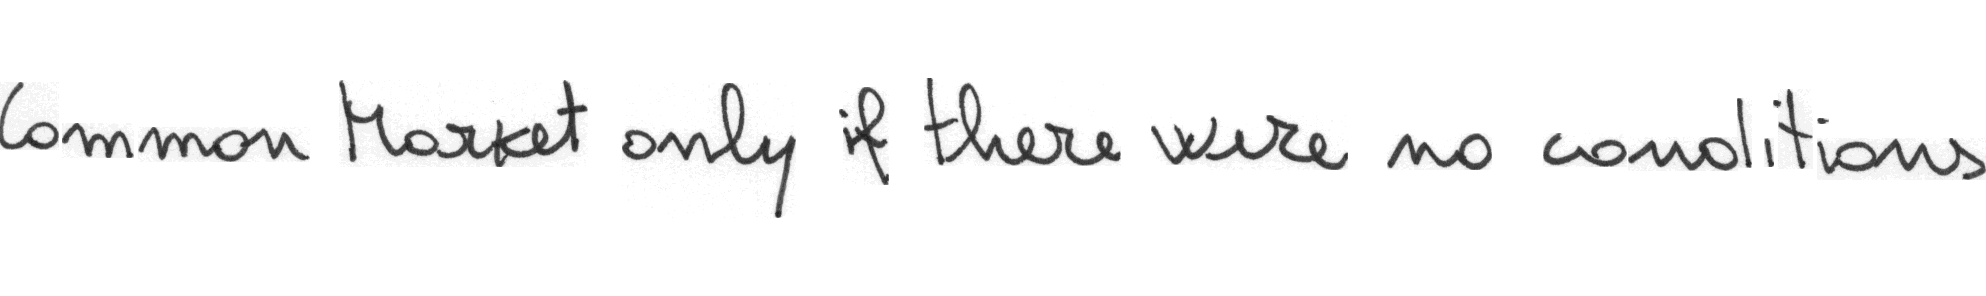 Common Market only if there were no conditions